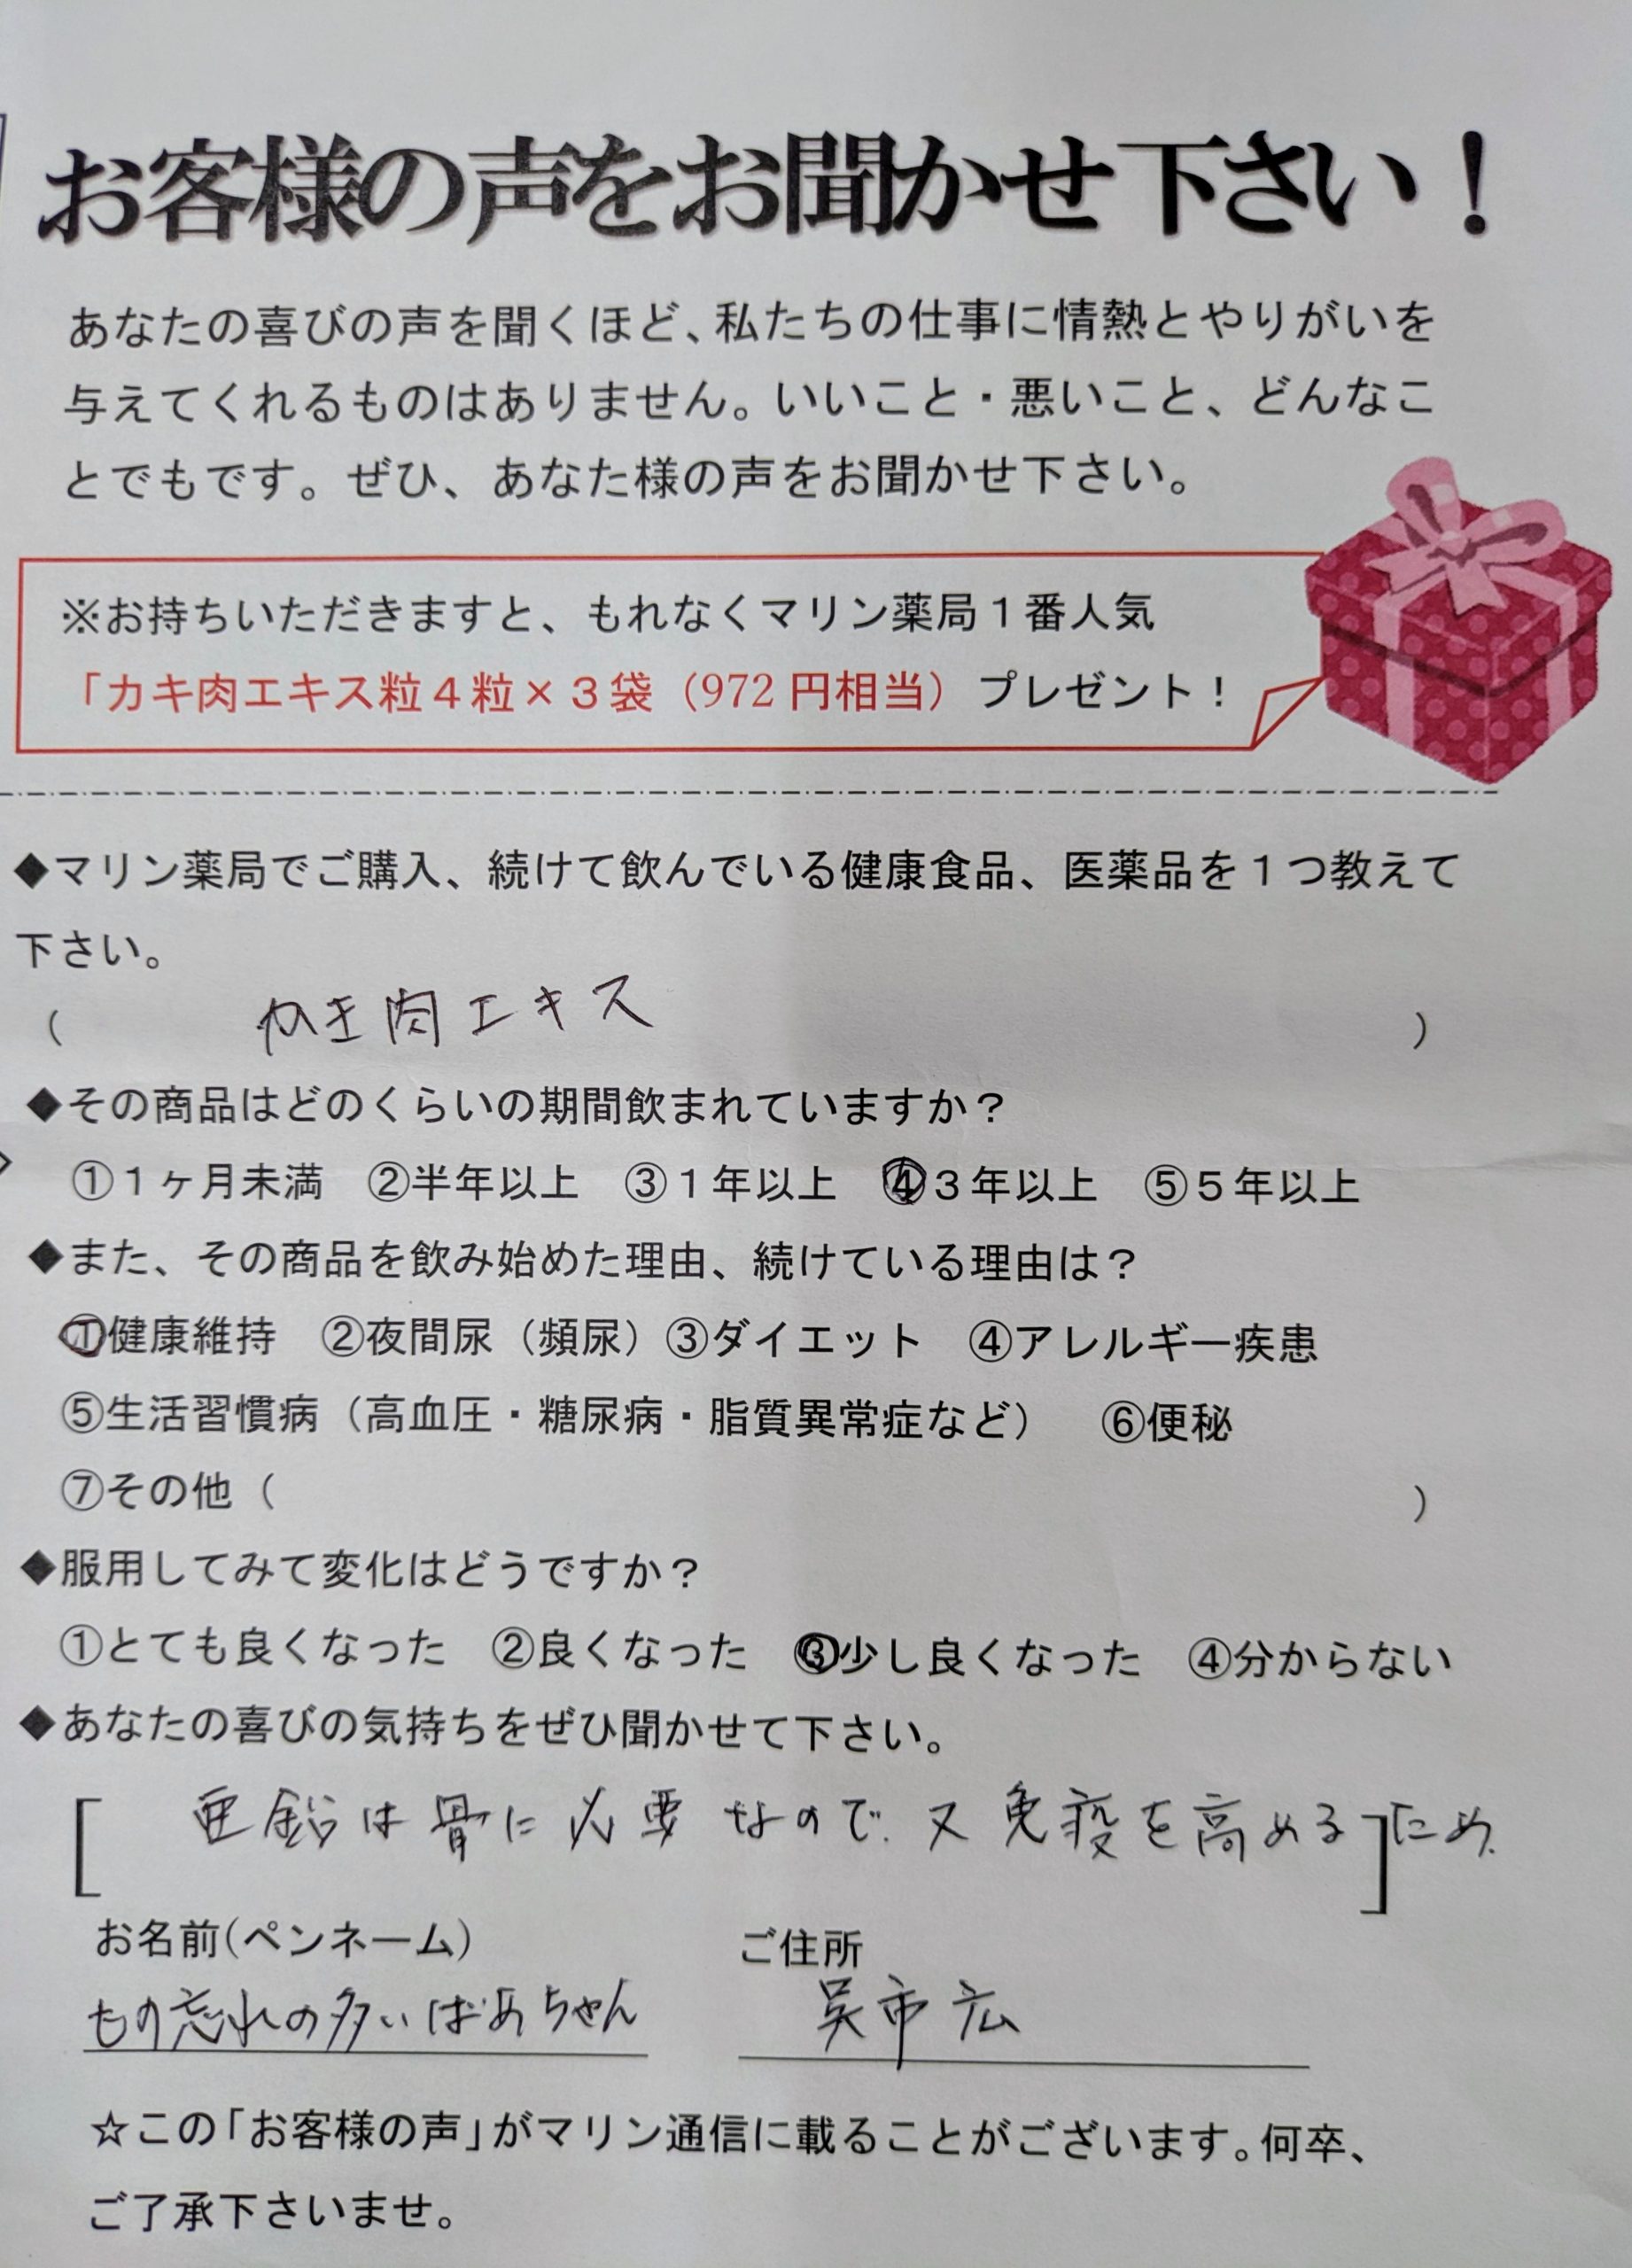 お客様の声をお聞かせ下さい！
あなたの喜びの声を聞くほど、私たちの仕事に情熱とやりがいを
与えてくれるものはありません。いいこと・悪いこと、どんなこ
とでもです。ぜひ、あなた様の声をお聞かせ下さい。
※お持ちいただきますと、もれなくマリン薬局１番人気
「カキ肉エキス粒４粒×３袋（972円相当）プレゼント！
◆マリン薬局でご購入、続けて飲んでいる健康食品、医薬品を１つ教えて
下さい。
（ カキ肉エキス ）
◆その商品はどのくらいの期間飲まれていますか？
①１ヶ月未満 ②半年以上 ③１年以上 ④３年以上 ⑤５年以上
◆また、その商品を飲み始めた理由、続けている理由は？
①健康維持 ②夜間尿（頻尿）③ダイエット ④アレルギー疾患
⑤生活習慣病（高血圧・糖尿病・脂質異常症など） ⑥便秘
⑦その他（ ）
◆服用してみて変化はどうですか？
①とても良くなった ②良くなった ③少し良くなった ④分からない
◆あなたの喜びの気持ちをぜひ聞かせて下さい。
[ 亜鉛は骨に必要なので、又免疫を高める]ため、
お名前(ペンネーム) ご住所
もの忘れの多いばあちゃん 呉市広
☆この「お客様の声」がマリン通信に載ることがございます。何卒、
ご了承下さいませ。